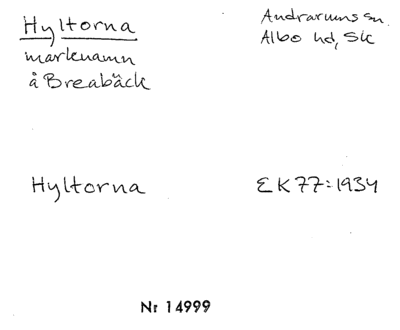 Hyltorna
Andrarums sn.
marknamn
Albo hd, Sk
å Breabäck
Hyltorna
EK 77:1934
Nr 14999